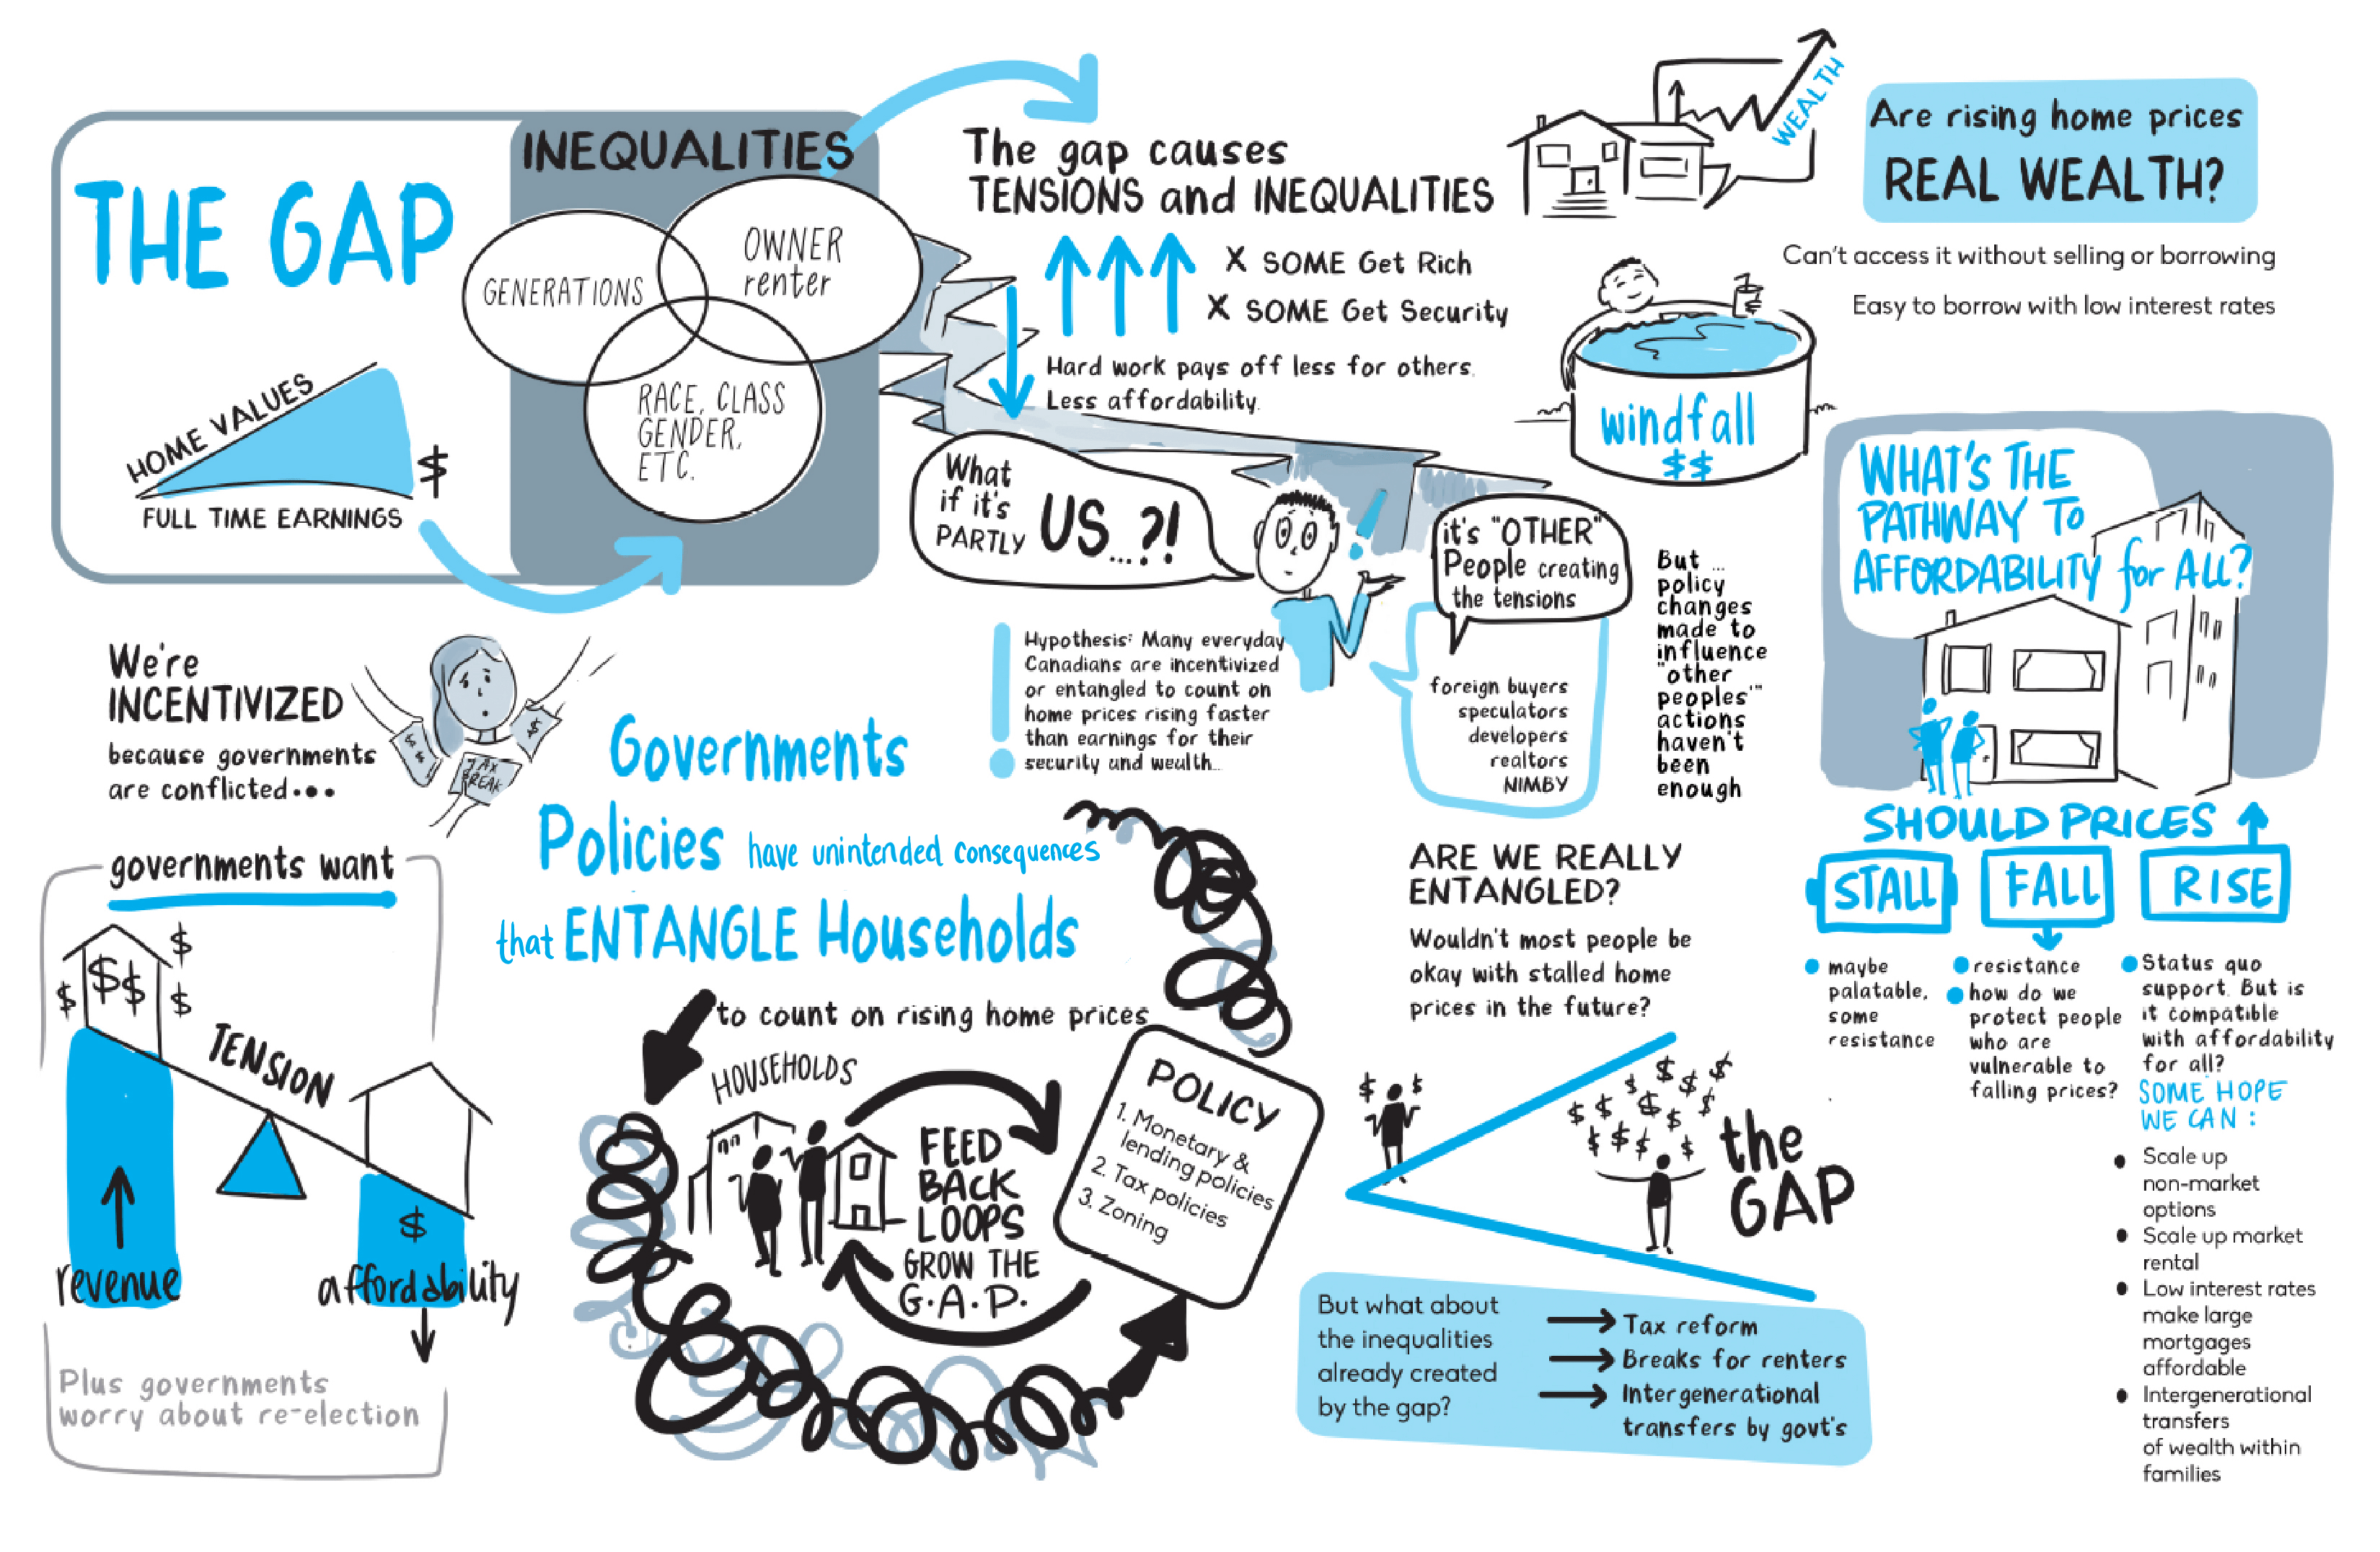 THE GAP
HOME VALUES
$
FULL TIME EARNINGS
INEQUALITIES
GENERATIONS
OWNER
renter
RACE, CLASS
GENDER,
ETC.
The gap causes
TENSIONS and INEQUALITIES
X SOME Get Rich
X SOME Get Security
Hard work pays off less for others.
Less affordability.
WEALTH
Are rising home prices
REAL WEALTH?
Can't access it without selling or borrowing
Easy to borrow with low interest rates
windfall
$$
What
if it's
PARTLY
US...?!
!
it's "OTHER"
People creating
the tensions
foreign buyers
speculators
developers
realtors
NIMBY
But ...
policy
changes
made to
influence
"other
peoples'"
actions
haven't
been
enough
!
Hypothesis: Many everyday
Canadians are incentivized
or entangled to count on
home prices rising faster
than earnings for their
security and wealth...
We're
INCENTIVIZED
because governments
are conflicted...
$$
TAX
BREAK
$
governments want
$ $$ $ $
TENSION
$
revenue
affordability
Plus governments
worry about re-election
Governments
Policies have unintended consequences
that ENTANGLE Households
to count on rising home prices
HOUSEHOLDS
FEED
BACK
LOOPS
GROW THE
G.A.P.
POLICY
1. Monetary &
lending policies
2. Tax policies
3. Zoning
ARE WE REALLY
ENTANGLED?
Wouldn't most people be
okay with stalled home
prices in the future?
$ $
$ $ $ $ $ $ $ $ $ $ $ $ $
the
GAP
But what about
the inequalities
already created
by the gap?
Tax reform
Breaks for renters
Intergenerational
transfers by govt's
WHAT'S THE
PATHWAY TO
AFFORDABILITY for ALL?
SHOULD PRICES
STALL
FALL
RISE
maybe
palatable,
some
resistance
resistance
how do we
protect people
who are
vulnerable to
falling prices?
Status quo
support. But is
it compatible
with affordability
for all?
SOME HOPE
WE CAN:
Scale up
non-market
options
Scale up market
rental
Low interest rates
make large
mortgages
affordable
Intergenerational
transfers
of wealth within
families